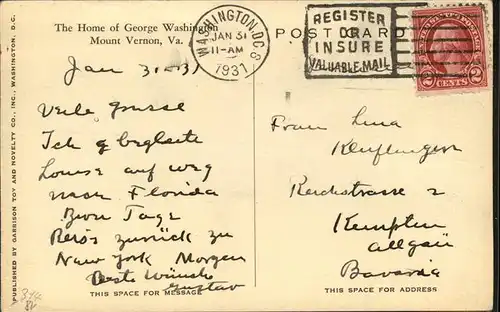 The Home of George Washington
Mount Vernon, Va.
WASHINGTON, D.C.
JAN 31
11-AM
1931
REGISTER
OR
INSURE
VALUABLE MAIL
POST CARD
2 CENTS 2
Jan 31-31
Viele Grüsse
Ich begleite
Louise auf weg
nach Florida
Zwei Tage
Reise zurück zu
New York Morgen
Beste Wünsche
Gustav
THIS SPACE FOR MESSAGE
Frau Lina
Reichstrasse 2
Kempten
Allgäu
Bavaria
THIS SPACE FOR ADDRESS
PUBLISHED BY GARRISON TOY AND NOVELTY CO., INC. WASHINGTON, D.C.